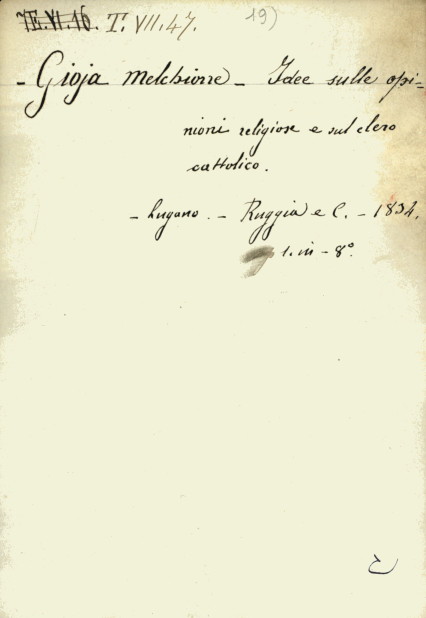 E.VI.16. T. VII.47. 19)
- Gioja Melchiorre - Idee sulle opi=
nioni religiose e sul clero
cattolico.
- Lugano. - Ruggia e C. - 1834.
1. in - 8°.